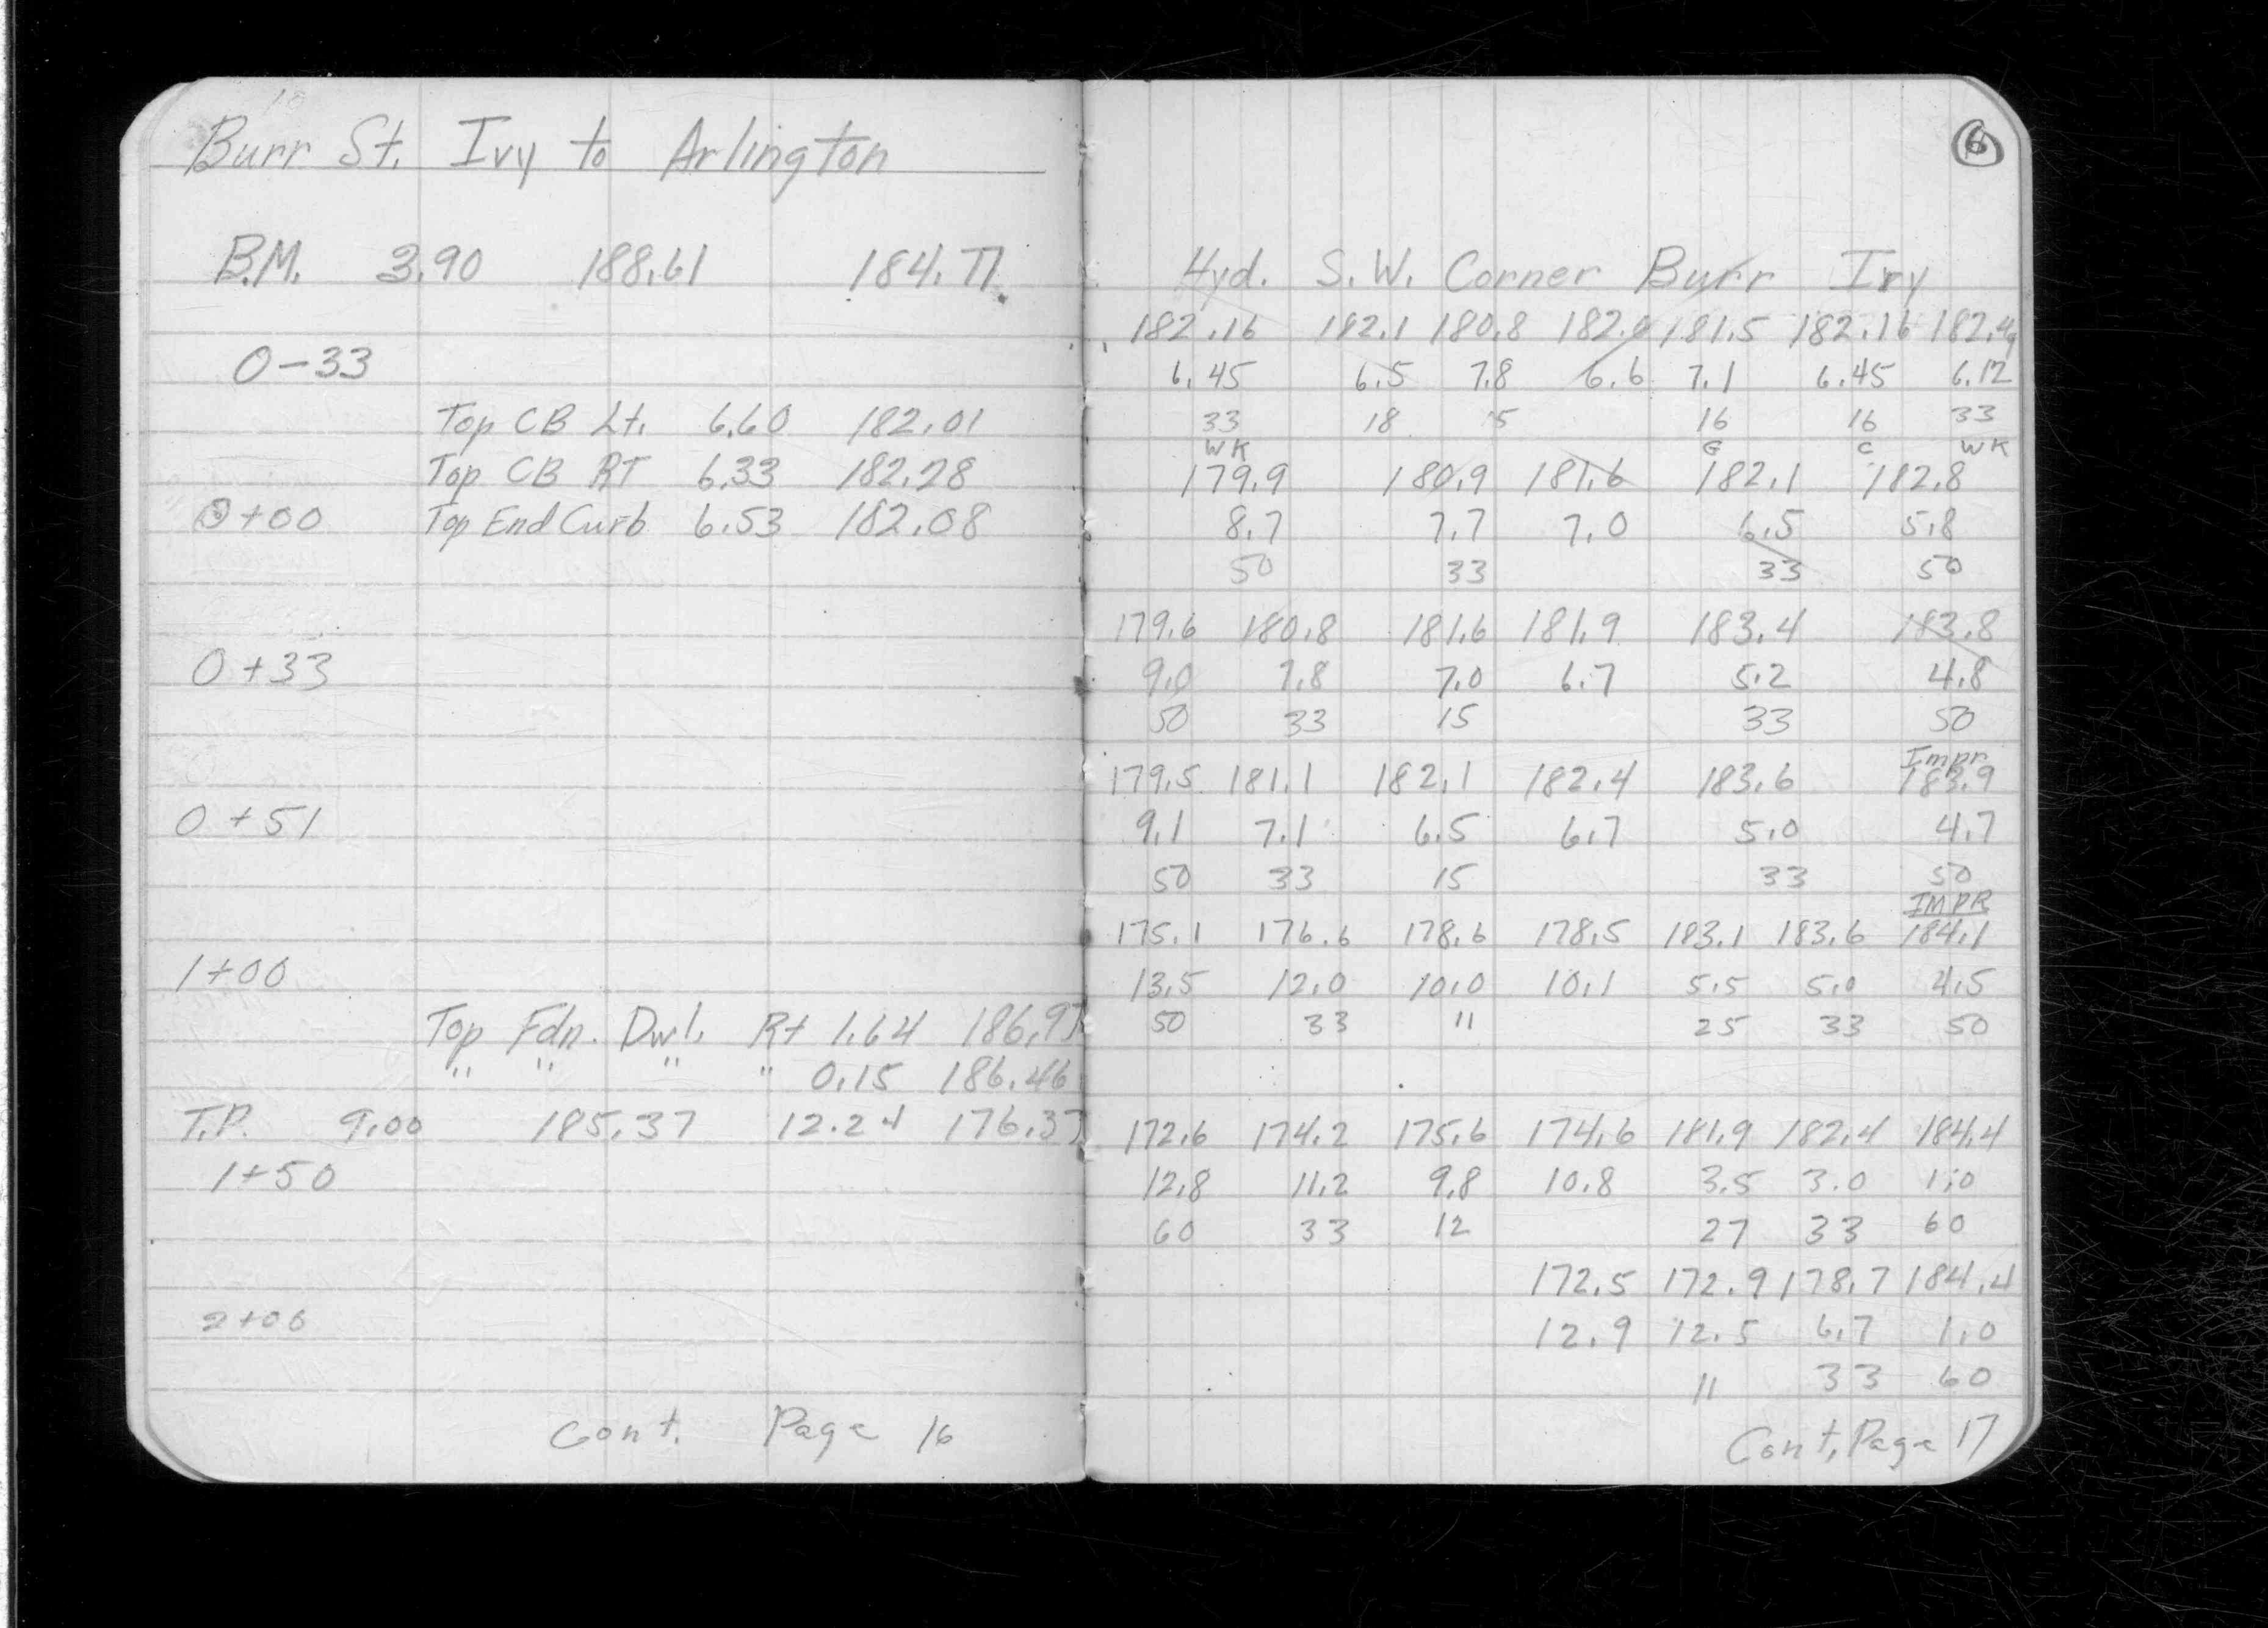 Burr St. Ivy to Arlington
B.M. 3.90 188.61 184.71
0-33
Top CB Lt. 6.60 182.01
Top CB RT 6.33 182.28
0+00 Top End Curb 6.53 182.08
0+33
0+51
1+00
Top Fdn. Dwl. Rt 1.64 186.97
" " " " 0.15 186.46
T.P. 9.00 185.37 12.24 176.37
1+50
2+00
Cont. Page 16
6
Hyd. S.W. Corner Burr Ivy
182.16 182.1 180.8 182.0 181.5 182.16 182.49
6.45 6.5 7.8 6.6 7.1 6.45 6.12
33 18 15 16 16 33
WK G C WK
179.9 180.9 181.6 182.1 182.8
8.7 7.7 7.0 6.5 5.8
50 33 33 50
179.6 180.8 181.6 181.9 183.4 183.8
9.0 7.8 7.0 6.7 5.2 4.8
50 33 15 33 50
Impr
179.5 181.1 182.1 182.4 183.6 183.9
9.1 7.1 6.5 6.7 5.0 4.7
50 33 15 33 50
IMPR
175.1 176.6 178.6 178.5 183.1 183.6 184.1
13.5 12.0 10.0 10.1 5.5 5.0 4.5
50 33 11 25 33 50
172.6 174.2 175.6 174.6 181.9 182.4 184.4
12.8 11.2 9.8 10.8 3.5 3.0 1.0
60 33 12 27 33 60
172.5 172.9 178.7 184.4
12.9 12.5 6.7 1.0
11 33 60
Cont. Page 17